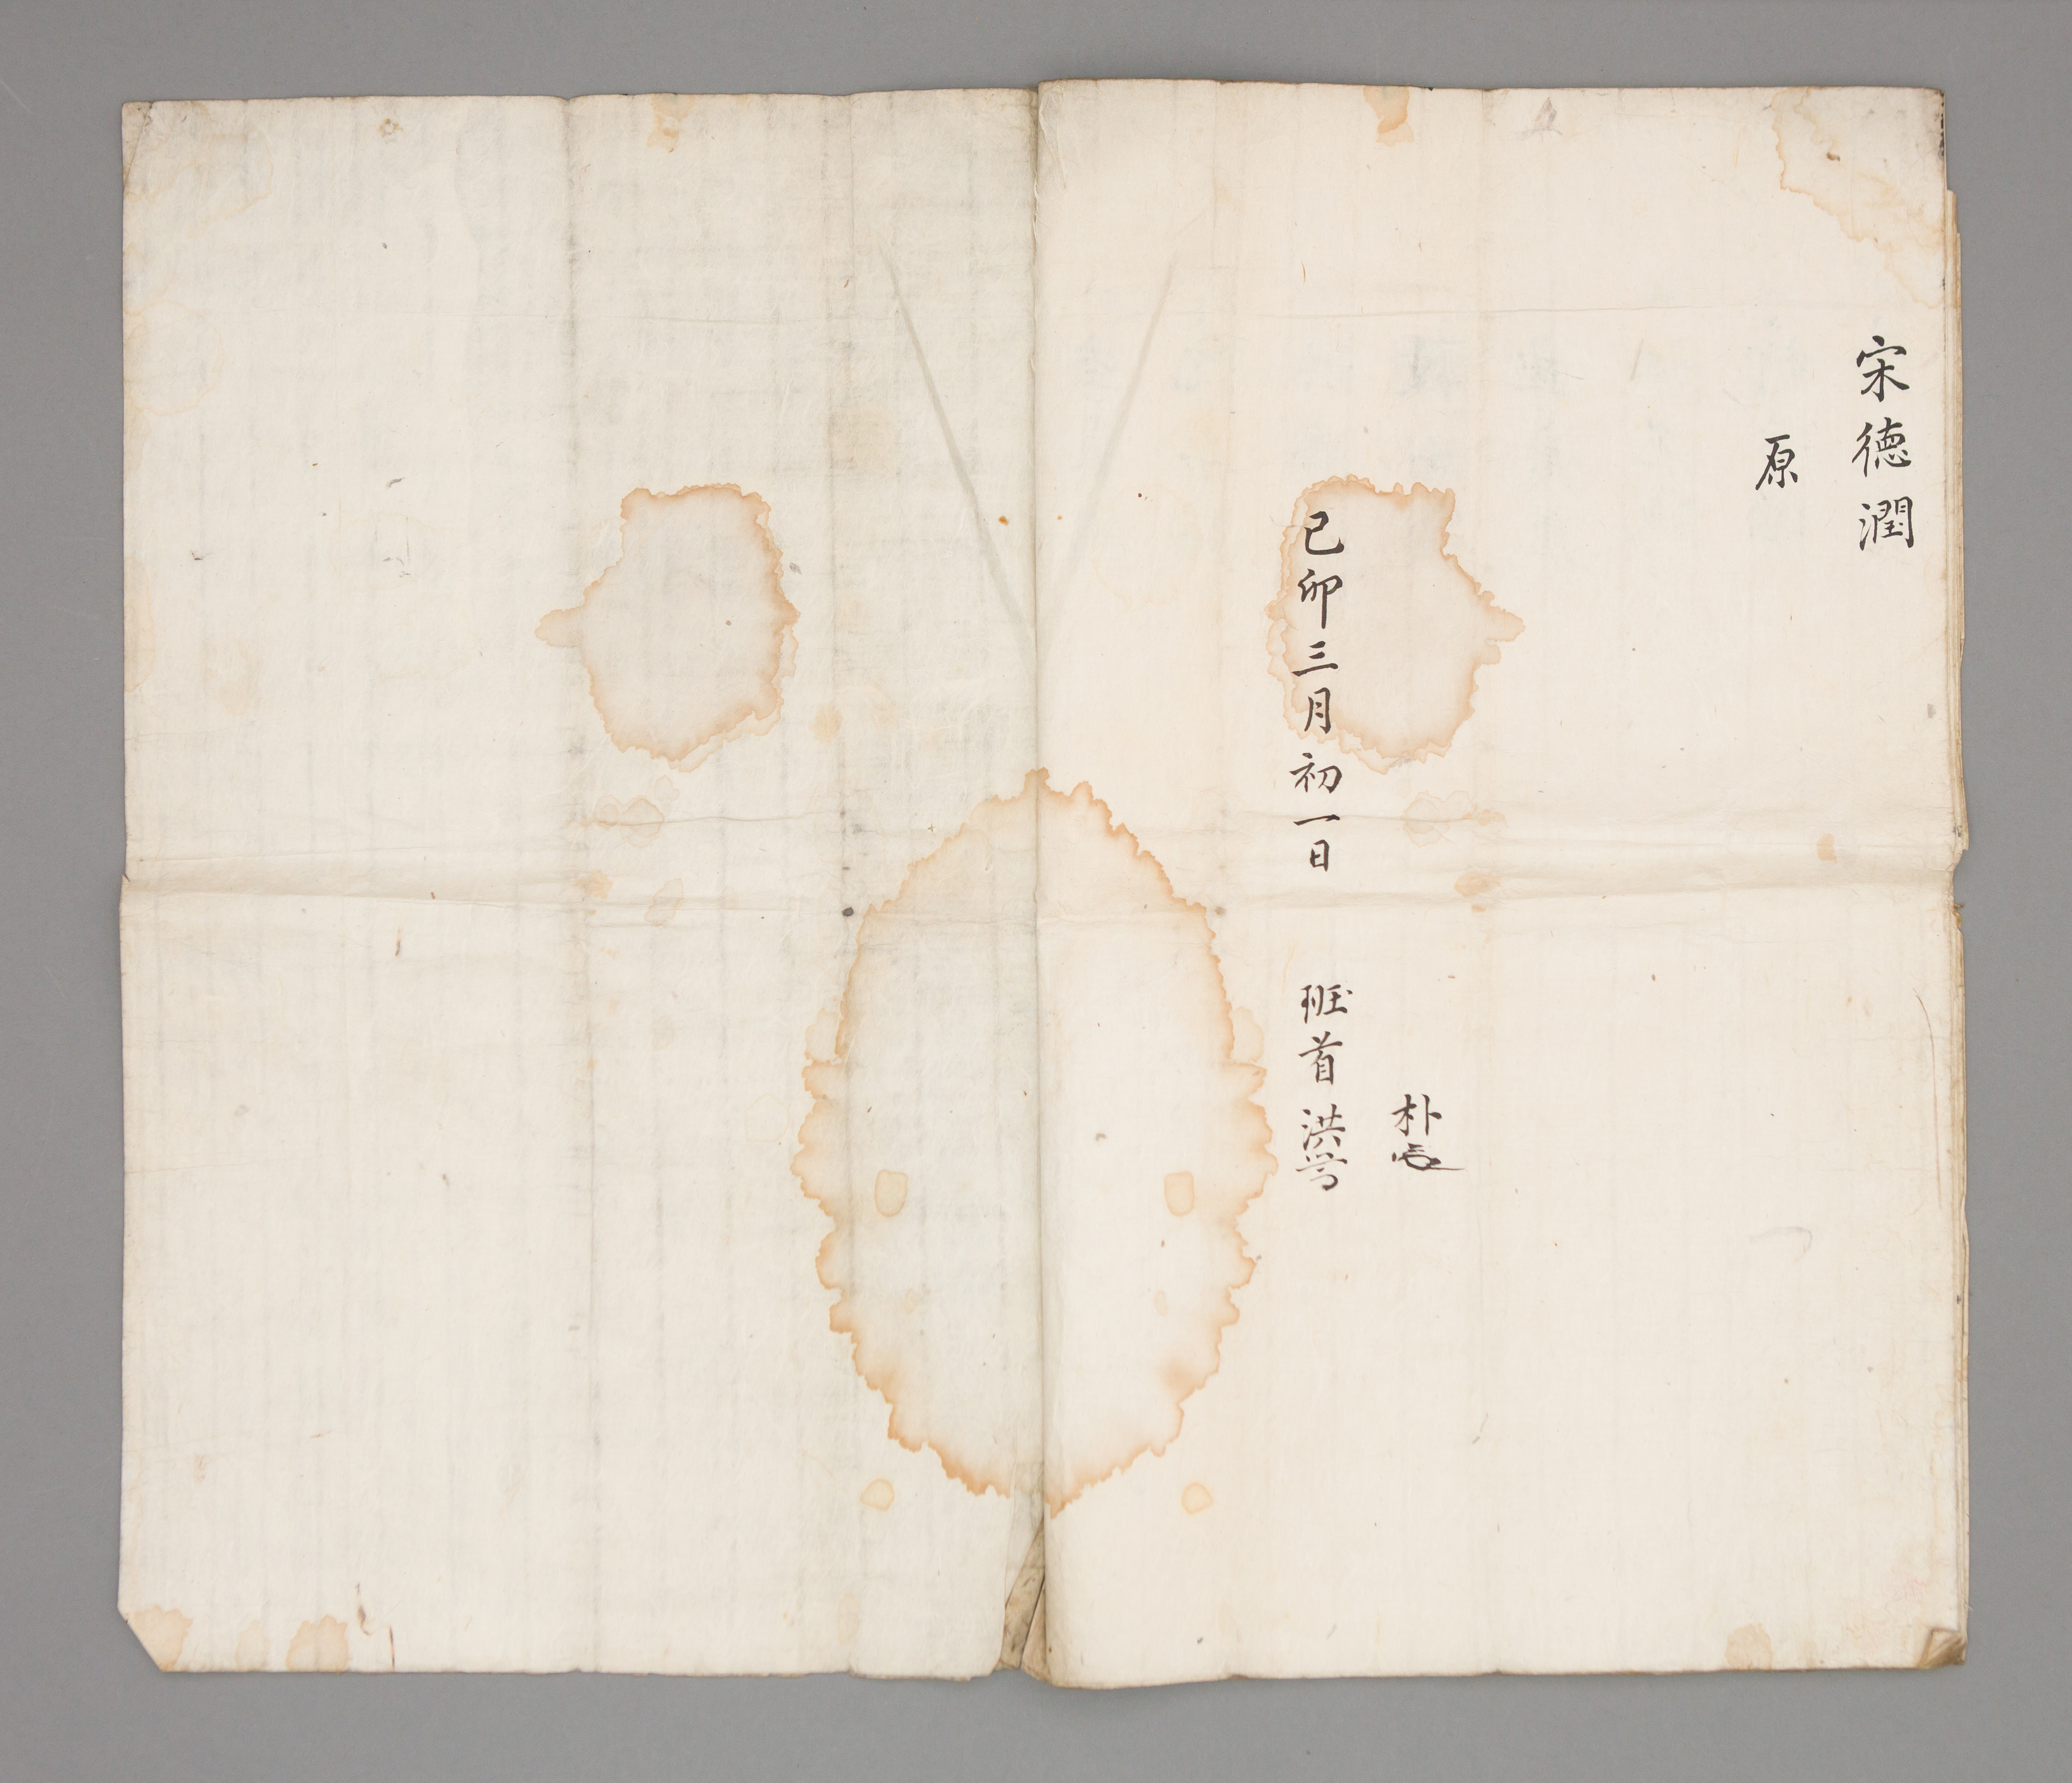 宋德潤
原
朴
己卯三月初一日 班首 洪